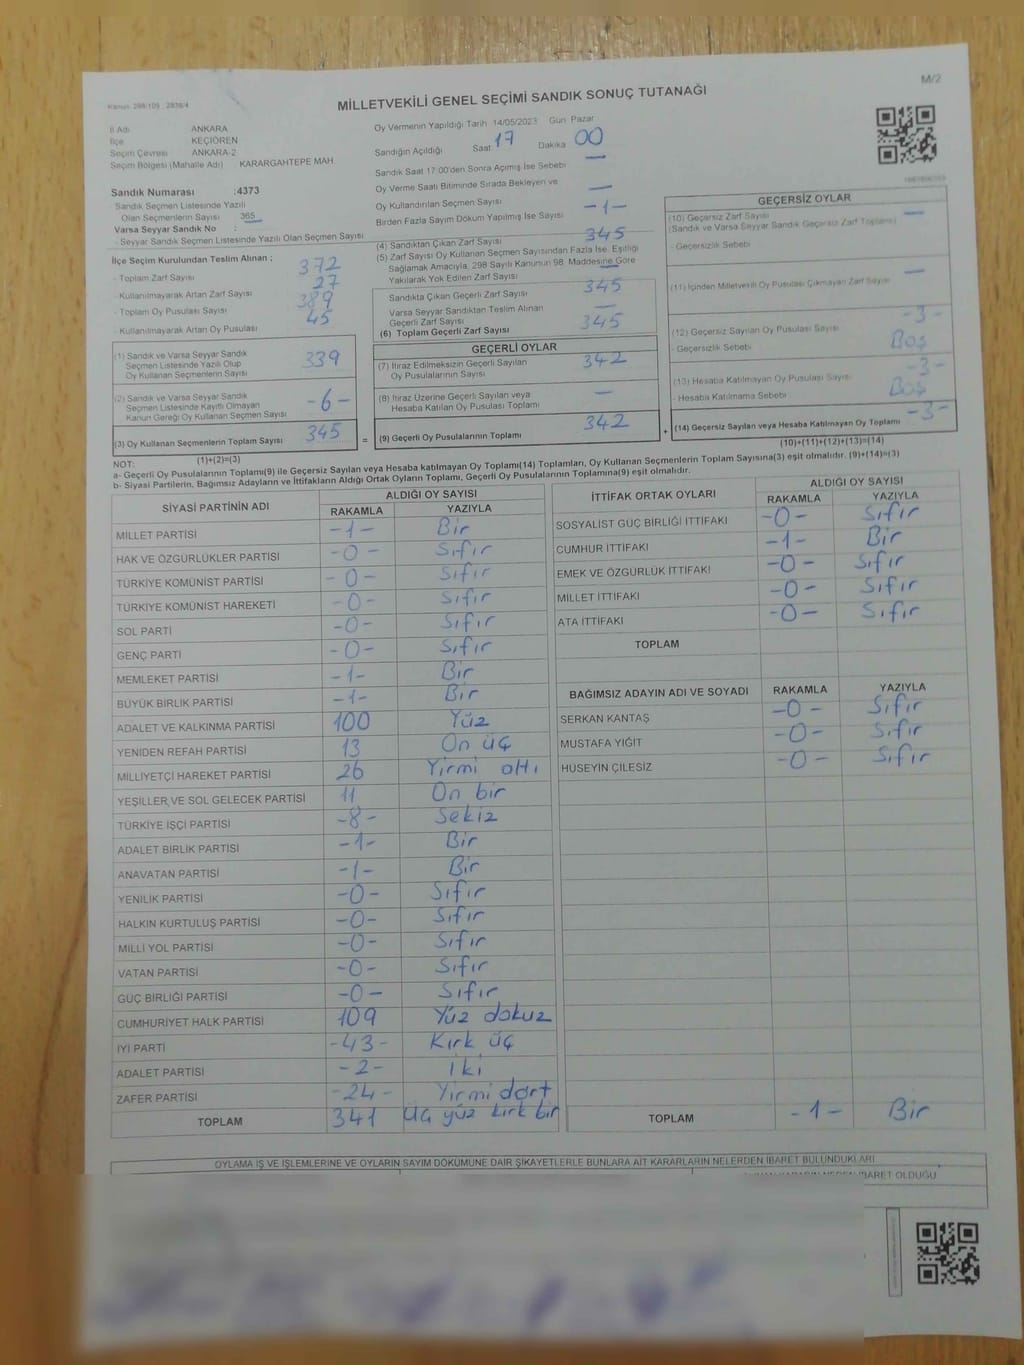 Kanun 298/105 ; 2839/4
M/2
MİLLETVEKİLİ GENEL SEÇİMİ SANDIK SONUÇ TUTANAĞI
İl Adı ANKARA
İlçe KEÇİÖREN
Seçim Çevresi ANKARA-2
Seçim Bölgesi (Mahalle Adı) KARARGAHTEPE MAH.
Sandık Numarası :4373
- Sandık Seçmen Listesinde Yazılı
Olan Seçmenlerin Sayısı 365
Varsa Seyyar Sandık No :
- Seyyar Sandık Seçmen Listesinde Yazılı Olan Seçmen Sayısı
İlçe Seçim Kurulundan Teslim Alınan ;
- Toplam Zarf Sayısı 372
- Kullanılmayarak Artan Zarf Sayısı 27
- Toplam Oy Pusulası Sayısı 389
- Kullanılmayarak Artan Oy Pusulası 45
(1) Sandık ve Varsa Seyyar Sandık
Seçmen Listesinde Yazılı Olup
Oy Kullanan Seçmenlerin Sayısı 339
(2) Sandık ve Varsa Seyyar Sandık
Seçmen Listesinde Kayıtlı Olmayan
Kanun Gereği Oy Kullanan Seçmen Sayısı -6-
(3) Oy Kullanan Seçmenlerin Toplam Sayısı 345
(1)+(2)=(3)
Oy Vermenin Yapıldığı Tarih 14/05/2023 Gün Pazar
Sandığın Açıldığı Saat 17 Dakika 00
Sandık Saat 17:00'den Sonra Açılmış İse Sebebi —
Oy Verme Saati Bitiminde Sırada Bekleyen ve
Oy Kullandırılan Seçmen Sayısı —
Birden Fazla Sayım Döküm Yapılmış İse Sayısı -1-
(4) Sandıktan Çıkan Zarf Sayısı 345
(5) Zarf Sayısı Oy Kullanan Seçmen Sayısından Fazla İse, Eşitliği
Sağlamak Amacıyla, 298 Sayılı Kanunun 98. Maddesine Göre
Yakılarak Yok Edilen Zarf Sayısı —
Sandıkta Çıkan Geçerli Zarf Sayısı 345
Varsa Seyyar Sandıktan Teslim Alınan
Geçerli Zarf Sayısı —
(6) Toplam Geçerli Zarf Sayısı 345
GEÇERLİ OYLAR
(7) İtiraz Edilmeksizin Geçerli Sayılan
Oy Pusulalarının Sayısı 342
(8) İtiraz Üzerine Geçerli Sayılan veya
Hesaba Katılan Oy Pusulası Toplamı —
= (9) Geçerli Oy Pusulalarının Toplamı 342 +
GEÇERSİZ OYLAR
(10) Geçersiz Zarf Sayısı —
(Sandık ve Varsa Seyyar Sandık Geçersiz Zarf Toplamı)
- Geçersizlik Sebebi
(11) İçinden Milletvekili Oy Pusulası Çıkmayan Zarf Sayısı —
(12) Geçersiz Sayılan Oy Pusulası Sayısı -3-
- Geçersizlik Sebebi Boş
(13) Hesaba Katılmayan Oy Pusulası Sayısı -3-
- Hesaba Katılmama Sebebi Boş
(14) Geçersiz Sayılan veya Hesaba Katılmayan Oy Toplamı -3-
(10)+(11)+(12)+(13)=(14)
NOT:
a- Geçerli Oy Pusulalarının Toplamı(9) ile Geçersiz Sayılan veya Hesaba katılmayan Oy Toplamı(14) Toplamları, Oy Kullanan Seçmenlerin Toplam Sayısına(3) eşit olmalıdır. (9)+(14)=(3)
b- Siyasi Partilerin, Bağımsız Adayların ve İttifakların Aldığı Ortak Oyların Toplamı, Geçerli Oy Pusulalarının Toplamına(9) eşit olmalıdır.
SİYASİ PARTİNİN ADI ALDIĞI OY SAYISI
RAKAMLA YAZIYLA
MİLLET PARTİSİ -1- Bir
HAK VE ÖZGÜRLÜKLER PARTİSİ -0- Sıfır
TÜRKİYE KOMÜNİST PARTİSİ -0- Sıfır
TÜRKİYE KOMÜNİST HAREKETİ -0- Sıfır
SOL PARTİ -0- Sıfır
GENÇ PARTİ -0- Sıfır
MEMLEKET PARTİSİ -1- Bir
BÜYÜK BİRLİK PARTİSİ -1- Bir
ADALET VE KALKINMA PARTİSİ 100 Yüz
YENİDEN REFAH PARTİSİ 13 On üç
MİLLİYETÇİ HAREKET PARTİSİ 26 Yirmi altı
YEŞİLLER VE SOL GELECEK PARTİSİ 11 On bir
TÜRKİYE İŞÇİ PARTİSİ -8- Sekiz
ADALET BİRLİK PARTİSİ -1- Bir
ANAVATAN PARTİSİ -1- Bir
YENİLİK PARTİSİ -0- Sıfır
HALKIN KURTULUŞ PARTİSİ -0- Sıfır
MİLLİ YOL PARTİSİ -0- Sıfır
VATAN PARTİSİ -0- Sıfır
GÜÇ BİRLİĞİ PARTİSİ -0- Sıfır
CUMHURİYET HALK PARTİSİ 109 Yüz dokuz
İYİ PARTİ -43- Kırk üç
ADALET PARTİSİ -2- İki
ZAFER PARTİSİ -24- Yirmi dört
TOPLAM 341 Üç yüz kırk bir
İTTİFAK ORTAK OYLARI ALDIĞI OY SAYISI
RAKAMLA YAZIYLA
SOSYALİST GÜÇ BİRLİĞİ İTTİFAKI -0- Sıfır
CUMHUR İTTİFAKI -1- Bir
EMEK VE ÖZGÜRLÜK İTTİFAKI -0- Sıfır
MİLLET İTTİFAKI -0- Sıfır
ATA İTTİFAKI -0- Sıfır
TOPLAM
BAĞIMSIZ ADAYIN ADI VE SOYADI RAKAMLA YAZIYLA
SERKAN KANTAŞ -0- Sıfır
MUSTAFA YİĞİT -0- Sıfır
HÜSEYİN ÇİLESİZ -0- Sıfır
TOPLAM -1- Bir
OYLAMA İŞ VE İŞLEMLERİNE VE OYLARIN SAYIM DÖKÜMÜNE DAİR ŞİKAYETLERLE BUNLARA AİT KARARLARIN NELERDEN İBARET BULUNDUKLARI